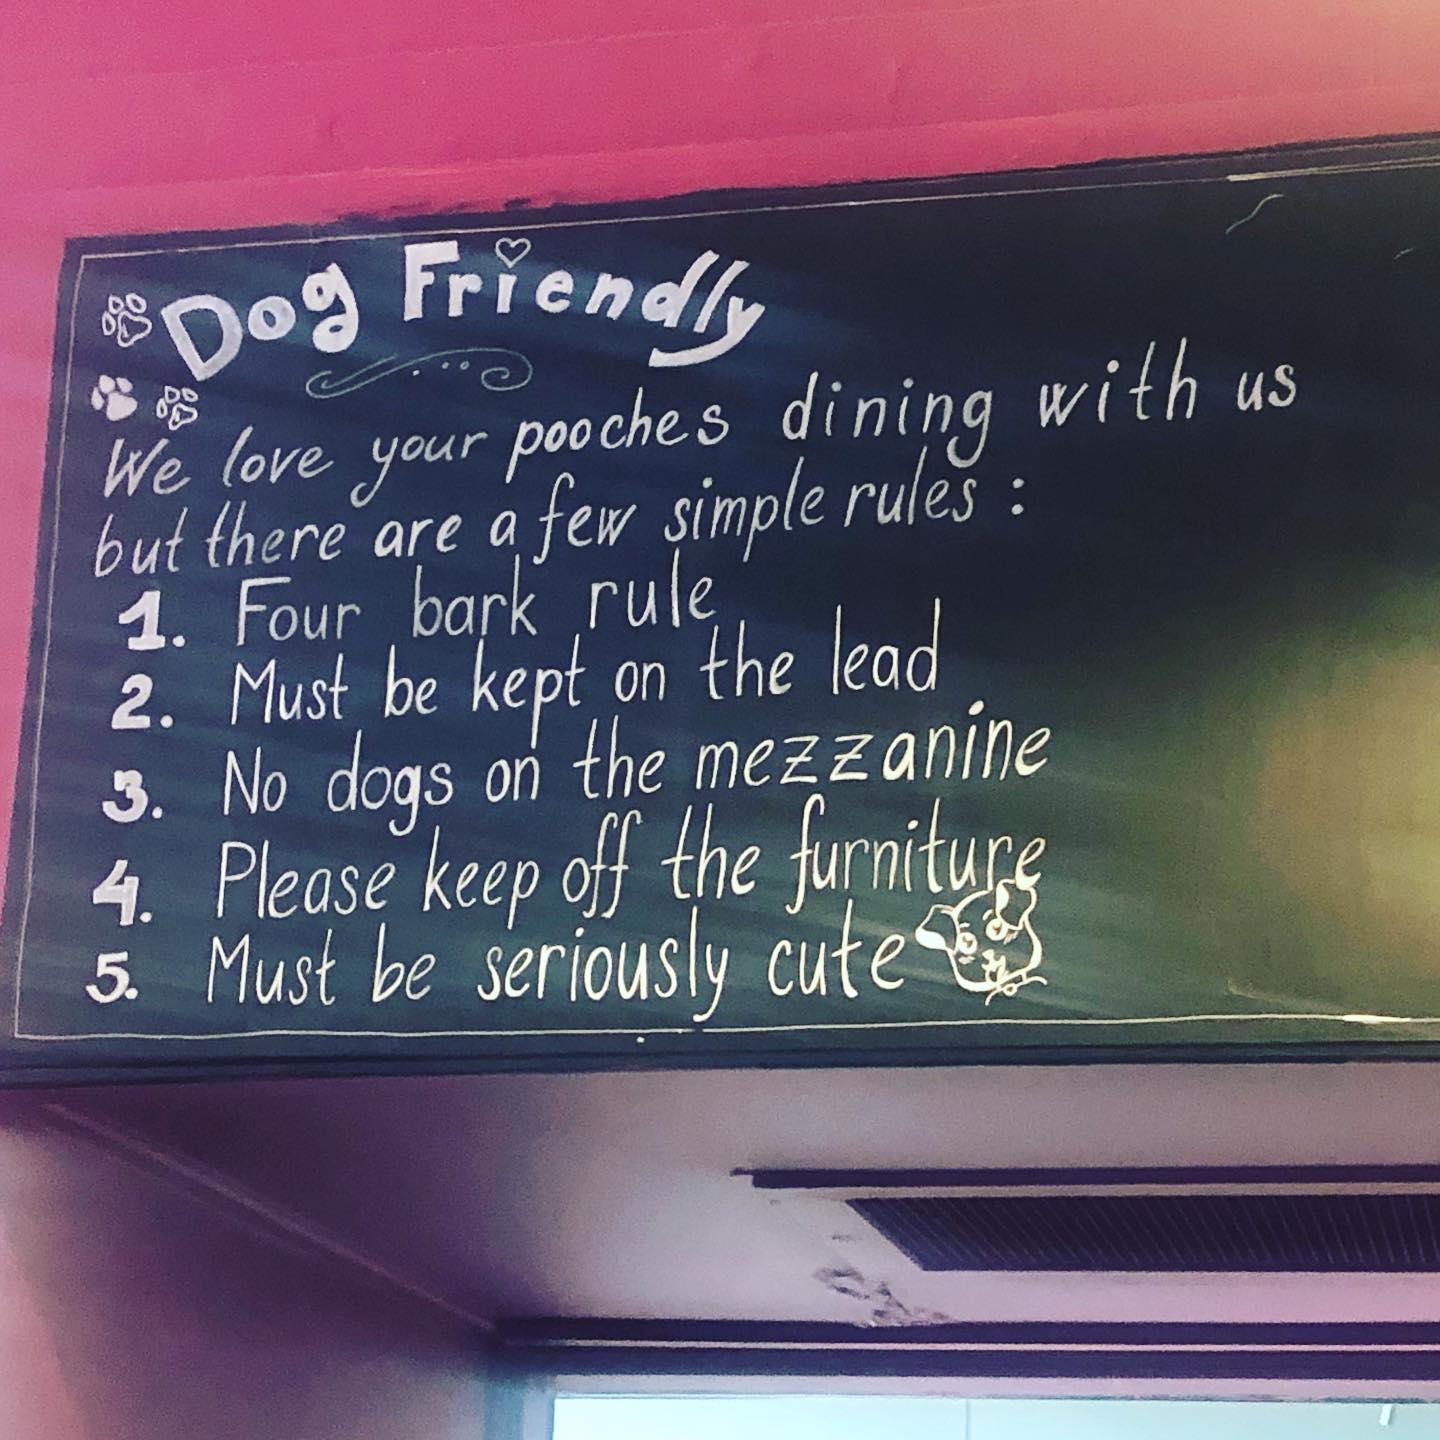 Dog Friendly
We love your pooches dining with us
but there are a few simple rules :
1. Four bark rule
2. Must be kept on the lead
3. No dogs on the mezzanine
4. Please keep off the furniture
5. Must be seriously cute